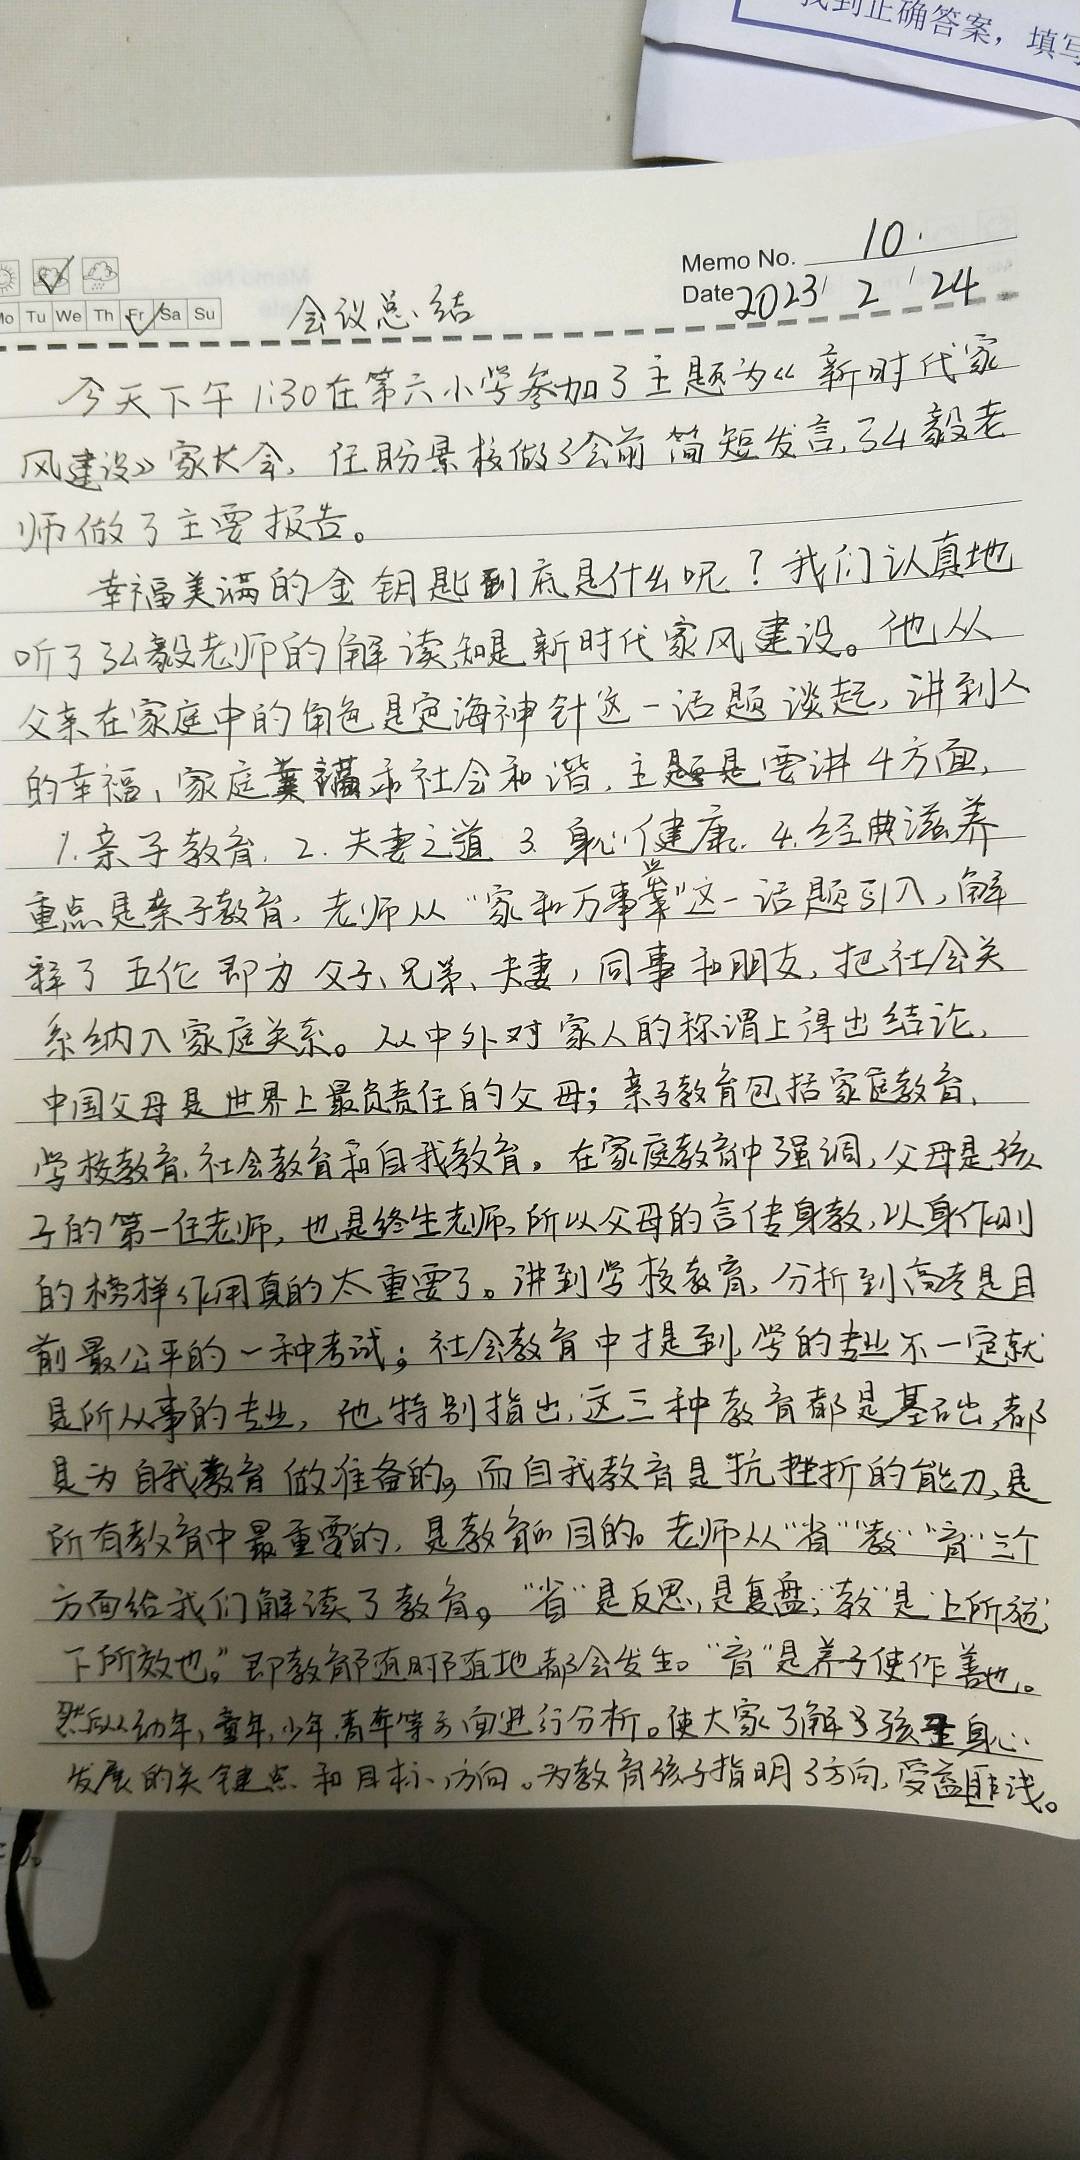 找到正确答案，填写
Memo No. 10.
Mo Tu We Th Fr Sa Su
Date 2023 / 2 / 24
会议总结
今天下午1:30在第六小学参加了主题为《新时代家
风建设》家长会，任盼景校做了会前简短发言，弘毅老
师做了主要报告。
幸福美满的金钥匙到底是什么呢？我们认真地
听了弘毅老师的解读知是新时代家风建设。他从
父亲在家庭中的角色是定海神针这一话题谈起，讲到人
的幸福，家庭美满和社会和谐，主题是要讲4方面，
1.亲子教育，2.夫妻之道 3.身心健康，4.经典滋养
重点是亲子教育，老师从“家和万事兴”这一话题引入，解
释了五伦即为父子、兄弟、夫妻，同事和朋友，把社会关
系纳入家庭关系。从中外对家人的称谓上得出结论，
中国父母是世界上最负责任的父母；亲子教育包括家庭教育，
学校教育，社会教育和自我教育。在家庭教育中强调，父母是孩
子的第一任老师，也是终生老师，所以父母的言传身教，以身作则
的榜样作用真的太重要了。讲到学校教育，分析到高考是目
前最公平的一种考试；社会教育中提到，学的专业不一定就
是所从事的专业，他特别指出，这三种教育都是基础，都
是为自我教育做准备的，而自我教育是抗挫折的能力，是
所有教育中最重要的，是教育的目的。老师从“省”“教”“育”三个
方面给我们解读了教育。“省”是反思，是复盘；“教”是“上所施，
下所效也。”即教育随时随地都会发生。“育”是养子使作善也。
然后从幼年，童年，少年，青年等方面进行分析。使大家了解了孩子身心
发展的关键点和目标、方向。为教育孩子指明了方向，受益匪浅。